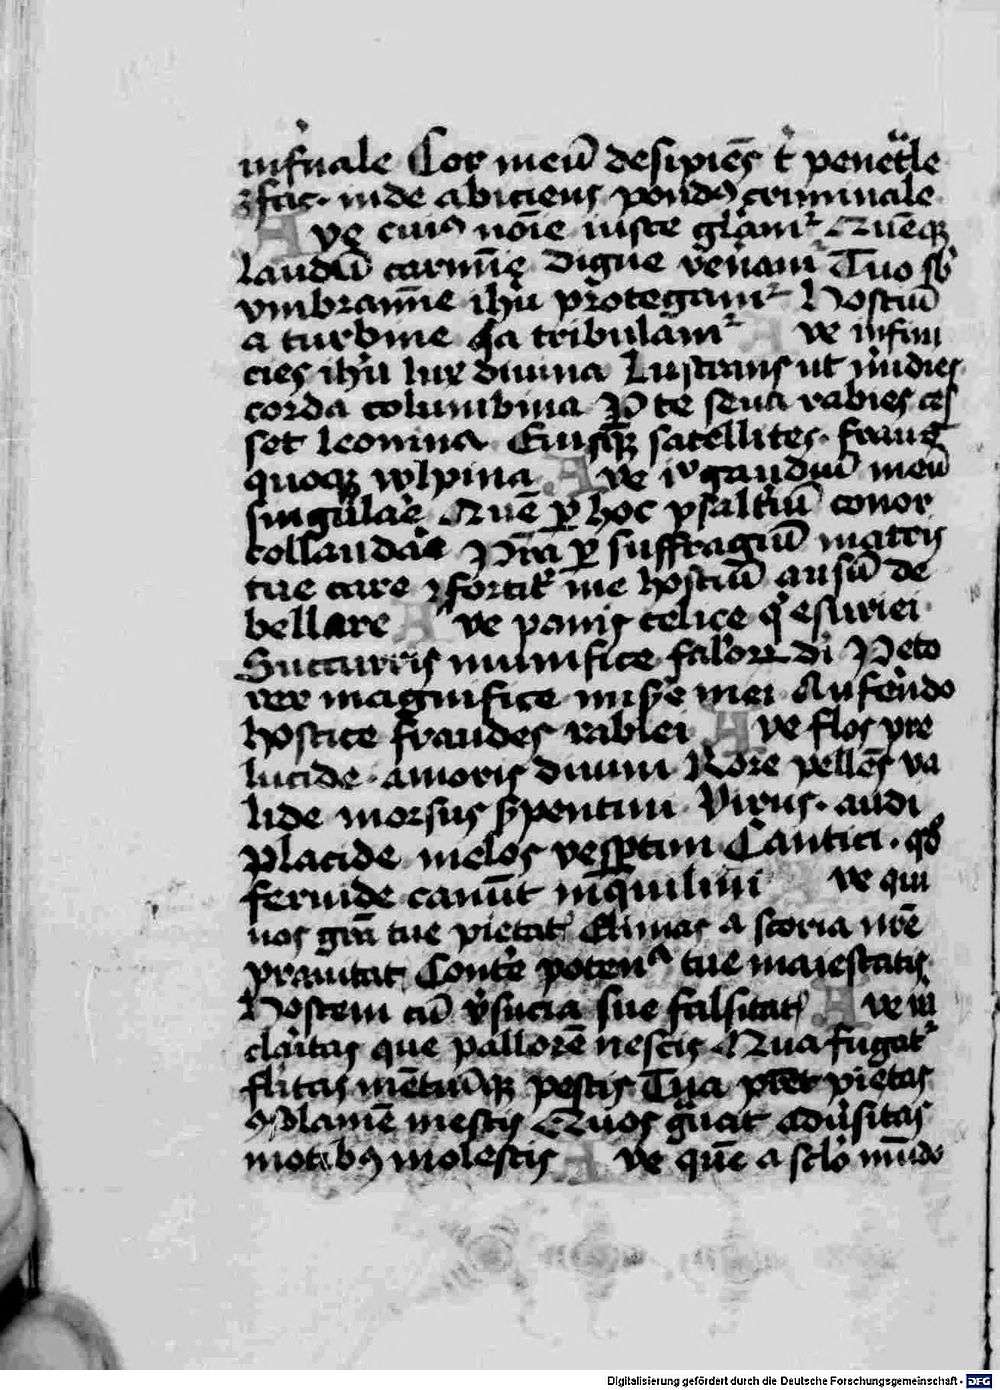 infnale Cor meū desipiēs t penetle
fac. inde abiciens pondꝰ criminale
Ave cuiꝰ noīe iuste Queq;
laudū carmīe digne Tuo sb
vmbramīe ihu protegam Hostiū
a turbine tribulam Ave infini
cies ihu lux diuina Lustrans ut mūdies
corda columbina P te seua rabies ces
set leonina Eiusq; satellites. frang
quoq; wlpina Ave gaudiū meū
singulāe Quē ꝑ hoc psaltiū conor
collaudāe Ptā ꝑ suffragiū matris
tue care ꝯfortā me hostiū ausū de
bellare Ave panis celice esuriei
Succurris munifice di Peto
rex magnifice mise mei Aufendo
hostice fraudes rabiei Ave flos pre
lucide. amoris diuini Rore pellēs va
lide morsus spentini Virus. audi
placide melos vesptini Cantici. qđ
feruide canūt inquilini Ave qui
nos grā tue pietat Elimas a scoria nrē
prauitat Conte potenꝰ tue maiestatis
Hostem cū vsucia sue falsitat Ave
claitas que pallorē nescis Qua fugat
pestis Tua pietas
ꝯsolamē mestis Quos guat adūsitas
motibꝰ molestis Ave quē a sclo mūdo